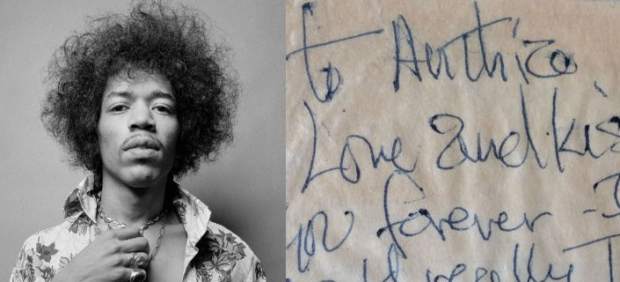 to Anthiza
Love and kis
you forever - I
really